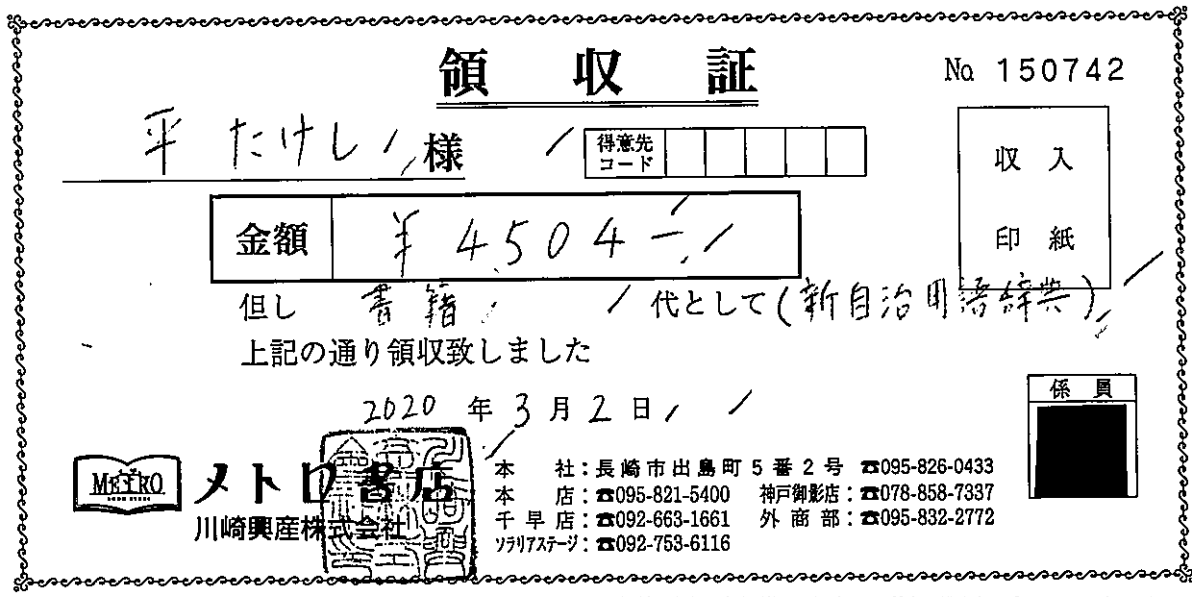 領収証
No 150742
平 たけし 様
得意先コード
収入印紙
金額 ¥4,504-
但し 書籍 代として(新自治用語辞典)
上記の通り領収致しました
2020年3月2日
係員
METRO メトロ書店
川崎興産株式会社
本社:長崎市出島町5番2号 ☎095-826-0433
本店:☎095-821-5400 神戸御影店:☎078-858-7337
千早店:☎092-663-1661 外商部:☎095-832-2772
ソラリアステージ:☎092-753-6116